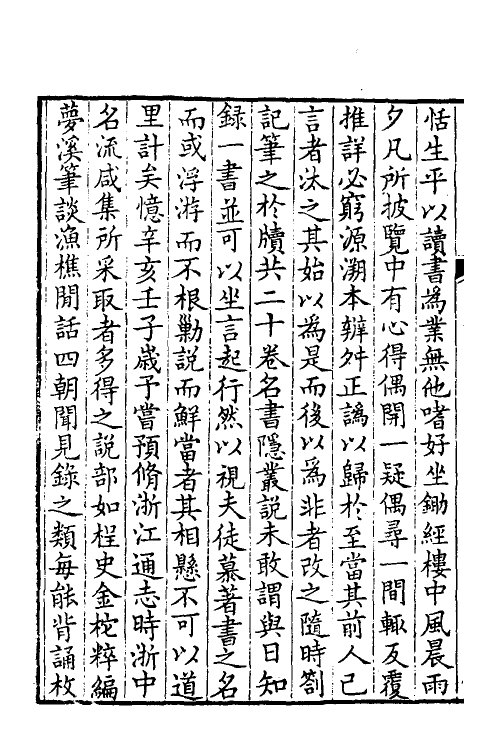 恬生平以讀書爲業無他嗜好坐鋤經樓中風晨雨
夕凡所披覽中有心得偶開一疑偶尋一間輒反覆
推詳必窮源溯本辯舛正譌以歸於至當其前人已
言者汰之其始以爲是而後以爲非者改之隨時劄
記筆之於牘共二十卷名書隱叢說未敢謂與日知
録一書並可以坐言起行然以視夫徒慕著書之名
而或浮游而不根勦説而鮮當者其相懸不可以道
里計矣憶辛亥壬子歲予嘗預脩浙江通志時浙中
名流咸集所采取者多得之説部如桯史金柁粹編
夢溪筆談漁樵閒話四朝聞見錄之類每能背誦枚